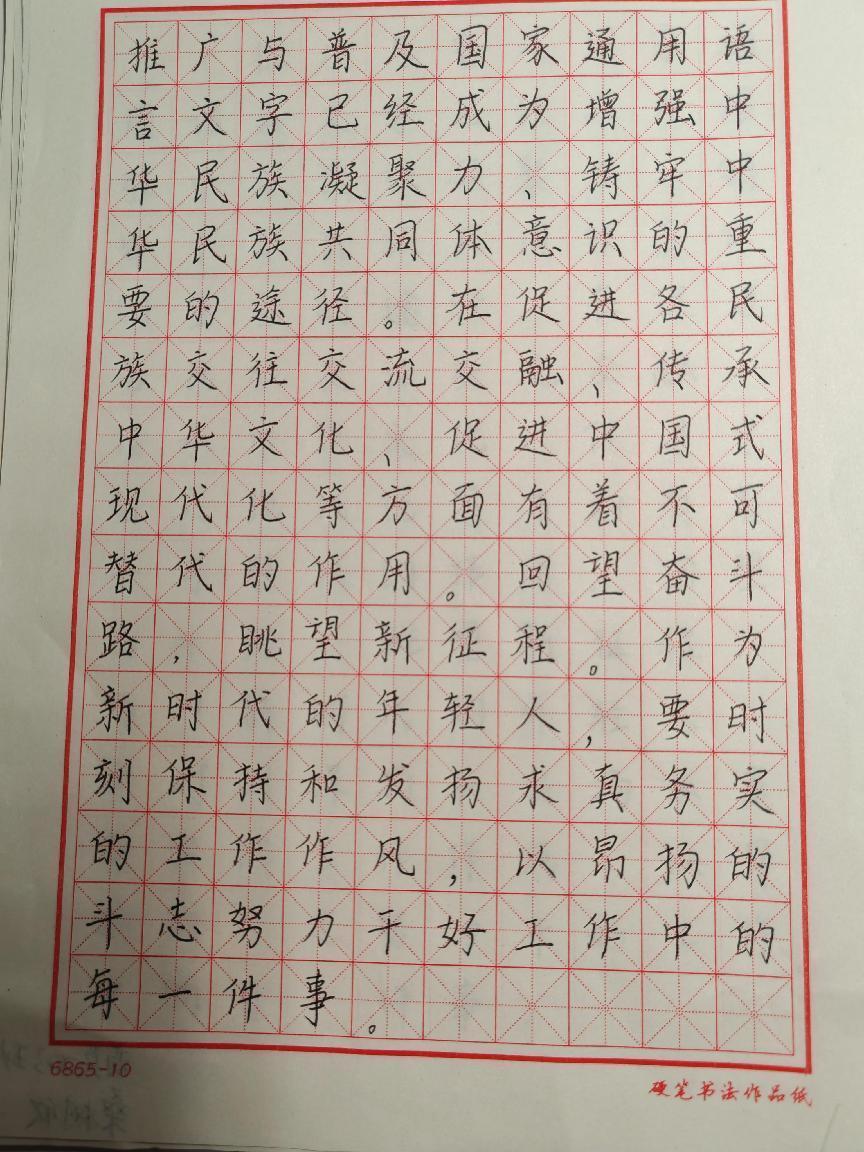 推广与普及国家通用语
言文字已经成为增强中
华民族凝聚力、铸牢中
华民族共同体意识的重
要的途径。在促进各民
族交往交流交融、传承
中华文化、促进中国式
现代化等方面有着不可
替代的作用。回望奋斗
路，眺望新征程。作为
新时代的年轻人，要时
刻保持和发扬求真务实
的工作作风，以昂扬的
斗志努力干好工作中的
每一件事。
6865-10
硬笔书法作品纸